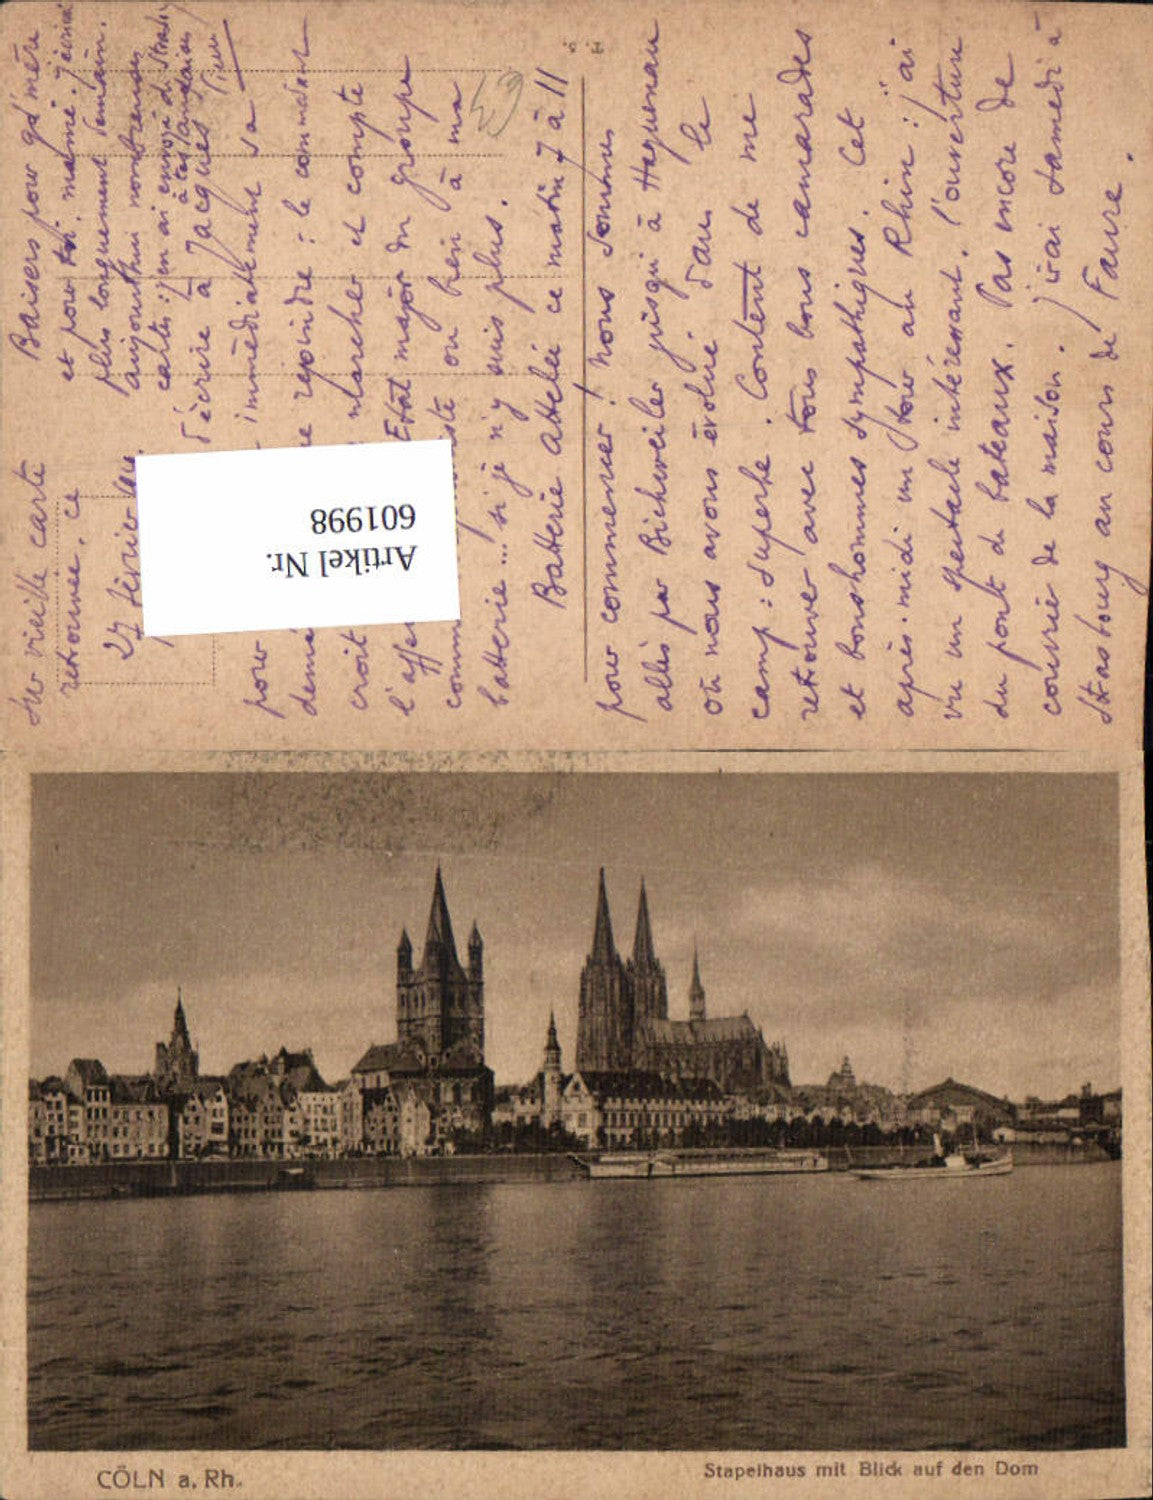 sur vieille carte
retrouvée. ce
27 février
pour
immédiatement sa
rejoindre : le commandant
croit
marcher et compte
Etat major du groupe
ou bien à ma
batterie... si je n'y suis plus.
Batterie attelée ce matin 7 à 11
pour commencer ! nous sommes
allés par Bichwiler jusqu'à Haguenau
où nous avons évolué dans le
camp : superbe. Content de me
retrouver avec tous bons camarades
et bonshommes sympathiques. Cet
après-midi un tour au Rhin : j'ai
vu un spectacle intéressant, l'ouverture
du pont de bateaux. Pas encore de
courrier de la maison. J'irai samedi à
Strasbourg au cours de Faure.
Baisers pour gd' mère
et pour toi. mamie. j'écrirai
plus longuement demain.
aujourd'hui
cartes : j'en ai envoyé de
à tes
d'écrire à Jacques
Artikel Nr.
601998
T. 5.
CÖLN a. Rh.
Stapelhaus mit Blick auf den Dom